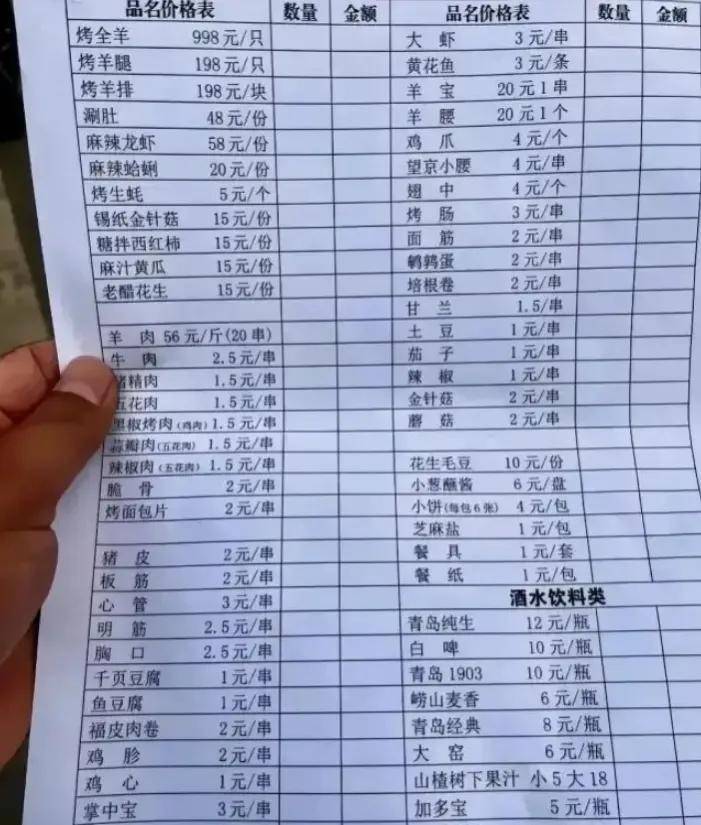 品名价格表 数量 金额
烤全羊 998元/只
烤羊腿 198元/只
烤羊排 198元/块
涮肚 48元/份
麻辣龙虾 58元/份
麻辣蛤蜊 20元/份
烤生蚝 5元/个
锡纸金针菇 15元/份
糖拌西红柿 15元/份
麻汁黄瓜 15元/份
老醋花生 15元/份
羊肉 56元/斤(20串)
牛肉 2.5元/串
精肉 1.5元/串
五花肉 1.5元/串
黑椒烤肉(鸡肉) 1.5元/串
蒜瓣肉(五花肉) 1.5元/串
辣椒肉(五花肉) 1.5元/串
脆骨 2元/串
烤面包片 2元/串
猪皮 2元/串
板筋 2元/串
心管 3元/串
明筋 2.5元/串
胸口 2.5元/串
千页豆腐 1元/串
鱼豆腐 1元/串
福皮肉卷 2元/串
鸡胗 2元/串
鸡心 1元/串
掌中宝 3元/串
品名价格表 数量 金额
大虾 3元/串
黄花鱼 3元/条
羊宝 20元1串
羊腰 20元1个
鸡爪 4元/个
望京小腰 4元/串
翅中 4元/个
烤肠 3元/串
面筋 2元/串
鹌鹑蛋 2元/串
培根卷 2元/串
甘兰 1.5/串
土豆 1元/串
茄子 1元/串
辣椒 1元/串
金针菇 2元/串
蘑菇 2元/串
花生毛豆 10元/份
小葱蘸酱 6元/盘
小饼(每包6张) 4元/包
芝麻盐 1元/包
餐具 1元/套
餐纸 1元/包
酒水饮料类
青岛纯生 12元/瓶
白啤 10元/瓶
青岛1903 10元/瓶
崂山麦香 6元/瓶
青岛经典 8元/瓶
大窑 6元/瓶
山楂树下果汁 小5大18
加多宝 5元/瓶